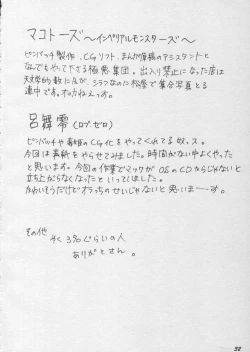 マコトーズ～インペリアルモンスターズ～
ピンパッチ製作、CGソフト、まんが原稿のアシスタントと
なんでもやって下さる極悪集団。出入り禁止になった店は
天文学的数に及び、シラフなのに松屋で集合写真とる
連中です。オッカねえっす。
呂舞零（ロブ・ゼロ）
ピンバッチや毒田のCG化をやってくれてる奴っス。
今回は表紙をやらせてみました。時間がない中よくやった
と思います。今回の作業でマックがOSのCDからじゃないと
立ち上がらなくなったといってました。
かわいそうだけどオラっちのせいじゃないと思いまーす。
その他
そく3%ぐらいの人
ありがとさん。
32